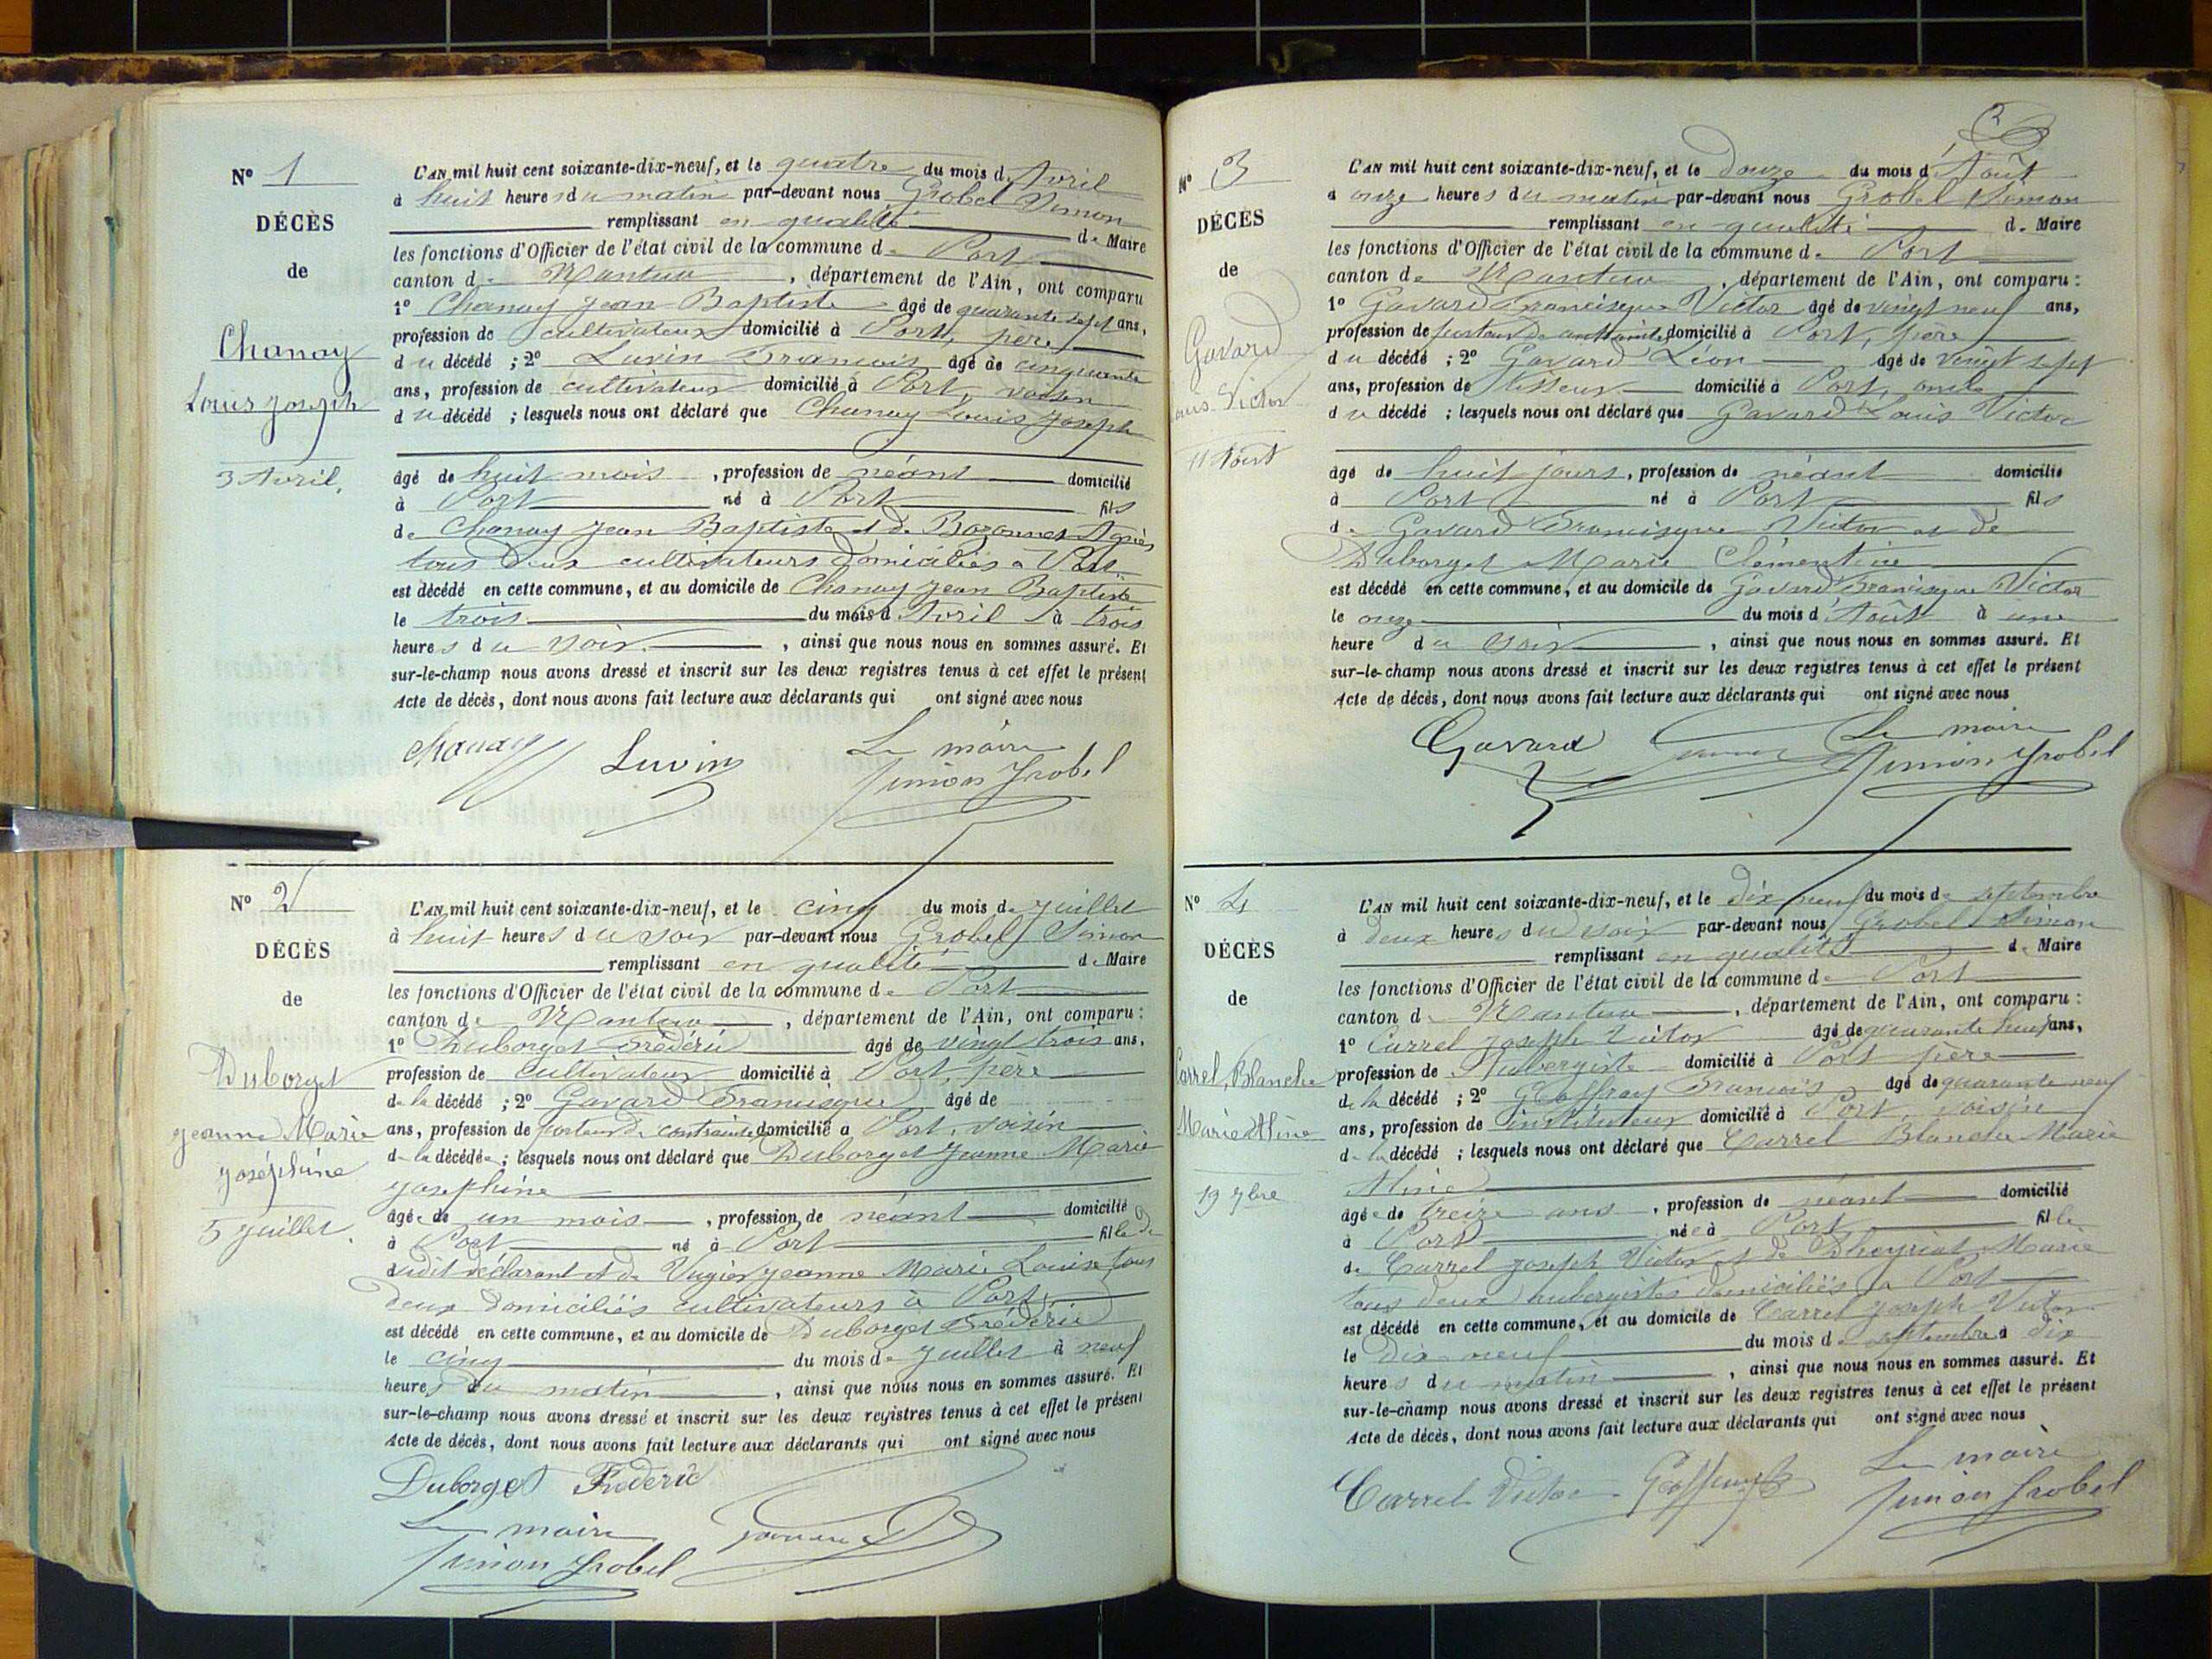 N° 1
DÉCÈS
de
Chanay
Louis Joseph
3 Avril.
L'AN mil huit cent soixante-dix-neuf, et le quatre du mois d'Avril
à huit heures du matin par-devant nous Grobel Simon
remplissant en qualité de Maire
les fonctions d'Officier de l'état civil de la commune de Port
canton de Nantua, département de l'Ain, ont comparu
1° Chanay Jean Baptiste âgé de quarante sept ans,
profession de cultivateur domicilié à Port, père
du décédé ; 2° Luvin François âgé de cinquante
ans, profession de cultivateur domicilié à Port, voisin
du décédé ; lesquels nous ont déclaré que Chanay Louis Joseph
âgé de huit mois, profession de néant domicilié
à Port né à Port fils
de Chanay Jean Baptiste et de Bozonnet Agnès
tous deux cultivateurs domiciliés à Port
est décédé en cette commune, et au domicile de Chanay Jean Baptiste
le trois du mois d'Avril à trois
heures du soir, ainsi que nous nous en sommes assuré. Et
sur-le-champ nous avons dressé et inscrit sur les deux registres tenus à cet effet le présent
Acte de décès, dont nous avons fait lecture aux déclarants qui ont signé avec nous
Chanay Luvin Le maire
Simon Grobel
N° 2
DÉCÈS
de
Duborget
Jeanne Marie
Joséphine
5 Juillet.
L'AN mil huit cent soixante-dix-neuf, et le cinq du mois de Juillet
à huit heures du soir par-devant nous Grobel Simon
remplissant en qualité de Maire
les fonctions d'Officier de l'état civil de la commune de Port
canton de Nantua, département de l'Ain, ont comparu :
1° Duborget Frédéric âgé de vingt trois ans,
profession de cultivateur domicilié à Port, père
de la décédé ; 2° Gavard Francisque âgé de
ans, profession de porteur de contrainte domicilié à Port, voisin
de la décédée ; lesquels nous ont déclaré que Duborget Jeanne Marie
Josephine
âgée de un mois, profession de néant domicilié
à Port né à Port fille du
sudit déclarant et de Vugier Jeanne Marie Louise tous
deux domiciliés cultivateurs à Port
est décédé en cette commune, et au domicile de Duborget Frédéric
le cinq du mois de Juillet à neuf
heures du matin, ainsi que nous nous en sommes assuré. Et
sur-le-champ nous avons dressé et inscrit sur les deux registres tenus à cet effet le présent
Acte de décès, dont nous avons fait lecture aux déclarants qui ont signé avec nous
Duborget Frédéric
Le maire
Simon Grobel
N° 3
DÉCÈS
de
Gavard
Louis Victor
11 Août
L'AN mil huit cent soixante-dix-neuf, et le Douze du mois d'Août
à onze heures du matin par-devant nous Grobel Simon
remplissant en qualité de Maire
les fonctions d'Officier de l'état civil de la commune de Port
canton de Nantua, département de l'Ain, ont comparu :
1° Gavard Francisque Victor âgé de vingt neuf ans,
profession de porteur de contrainte domicilié à Port, père
du décédé ; 2° Gavard Léon âgé de vingt sept
ans, profession de tisseur domicilié à Port, oncle
du décédé ; lesquels nous ont déclaré que Gavard Louis Victor
âgé de huit jours, profession de néant domicilié
à Port né à Port fils
de Gavard Francisque Victor et de
Duborget Marie Clémentine
est décédé en cette commune, et au domicile de Gavard Francisque Victor
le onze du mois d'Août à une
heure du soir, ainsi que nous nous en sommes assuré. Et
sur-le-champ nous avons dressé et inscrit sur les deux registres tenus à cet effet le présent
Acte de décès, dont nous avons fait lecture aux déclarants qui ont signé avec nous
Gavard Le maire
Simon Grobel
N° 4
DÉCÈS
de
Carrel, Blanche
Marie Aline
19 7bre
L'AN mil huit cent soixante-dix-neuf, et le dix neuf du mois de septembre
à deux heures du soir par-devant nous Grobel Simon
remplissant en qualité de Maire
les fonctions d'Officier de l'état civil de la commune de Port
canton de Nantua, département de l'Ain, ont comparu :
1° Carrel Joseph Victor âgé de quarante ans,
profession de Aubergiste domicilié à Port père
de la décédé ; 2° Goffray François âgé de quarante neuf
ans, profession de instituteur domicilié à Port, voisin
de la décédé ; lesquels nous ont déclaré que Carrel Blanche Marie
Aline
âgée de treize ans, profession de néant domicilié
à Port née à Port fille
de Carrel Joseph Victor et de Marie
tous deux aubergistes domiciliés à Port
est décédé en cette commune, et au domicile de Carrel Joseph Victor
le Dix neuf du mois de septembre à dix
heures du matin, ainsi que nous nous en sommes assuré. Et
sur-le-champ nous avons dressé et inscrit sur les deux registres tenus à cet effet le présent
Acte de décès, dont nous avons fait lecture aux déclarants qui ont signé avec nous
Carrel Victor Le maire
Simon Grobel